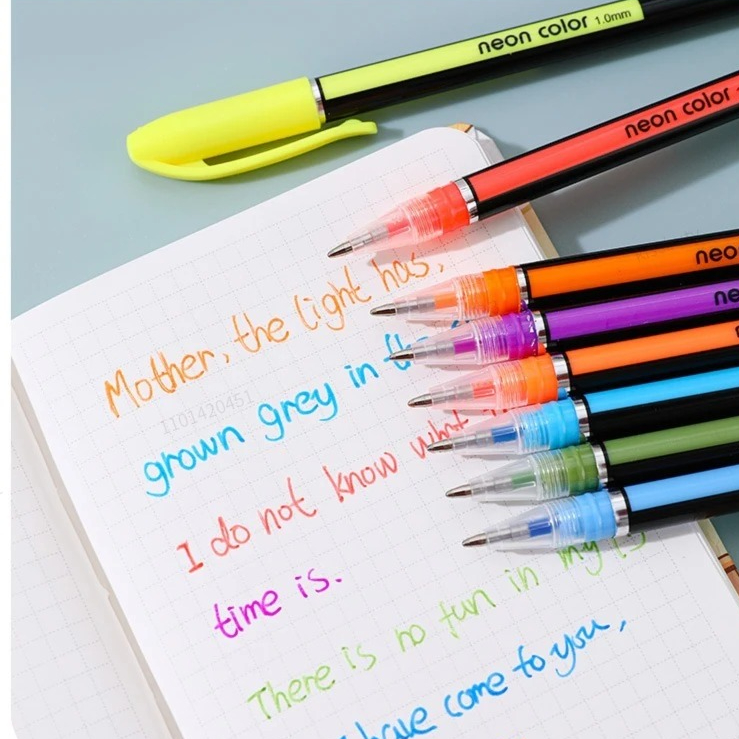 neon color 1.0mm
neon color
neo
ne
Mother, the light has,
1101420451
grown grey in
I do not know what
time is.
There is no fun in my
have come to you,